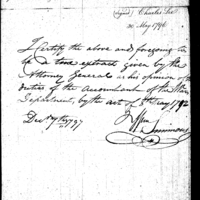 (signed) Charles Lee
20 May 1796
I Certify the above and foregoing to
be a true extract given by the
Attorney General as his opinion of the
duties of the accountant of the War
Department, by the act of 8th May 1792
Wm Simmons
Decr 7th 1797